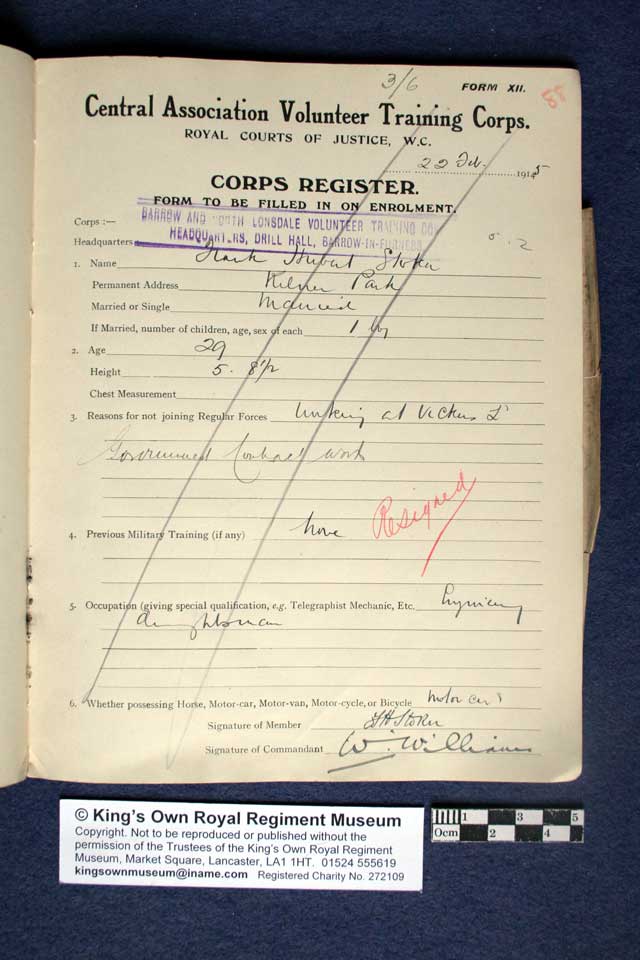 3/6 FORM XII. 58
Central Association Volunteer Training Corps.
ROYAL COURTS OF JUSTICE, W.C.
22 Feb. 1915
CORPS REGISTER.
FORM TO BE FILLED IN ON ENROLMENT.
Corps :— BARROW AND NORTH LONSDALE VOLUNTEER TRAINING CO
Headquarters HEADQUARTERS, DRILL HALL, BARROW-IN-FURNESS
1. Name Frank Hubert Stoker
Permanent Address Kilner Park
Married or Single Married
If Married, number of children, age, sex of each 1 boy
2. Age 29
Height 5. 8 1/2
Chest Measurement
3. Reasons for not joining Regular Forces Working at Vickers Ld
Government Contract Work
Resigned
4. Previous Military Training (if any) None
5. Occupation (giving special qualification, e.g. Telegraphist Mechanic, Etc. Engineering
draughtsman
6. Whether possessing Horse, Motor-car, Motor-van, Motor-cycle, or Bicycle Motor car
Signature of Member FH Stoker
Signature of Commandant W. Williams
© King's Own Royal Regiment Museum
Copyright. Not to be reproduced or published without the
permission of the Trustees of the King's Own Royal Regiment
Museum, Market Square, Lancaster, LA1 1HT. 01524 555619
kingsownmuseum@iname.com Registered Charity No. 272109
1 3 5
0cm 2 4